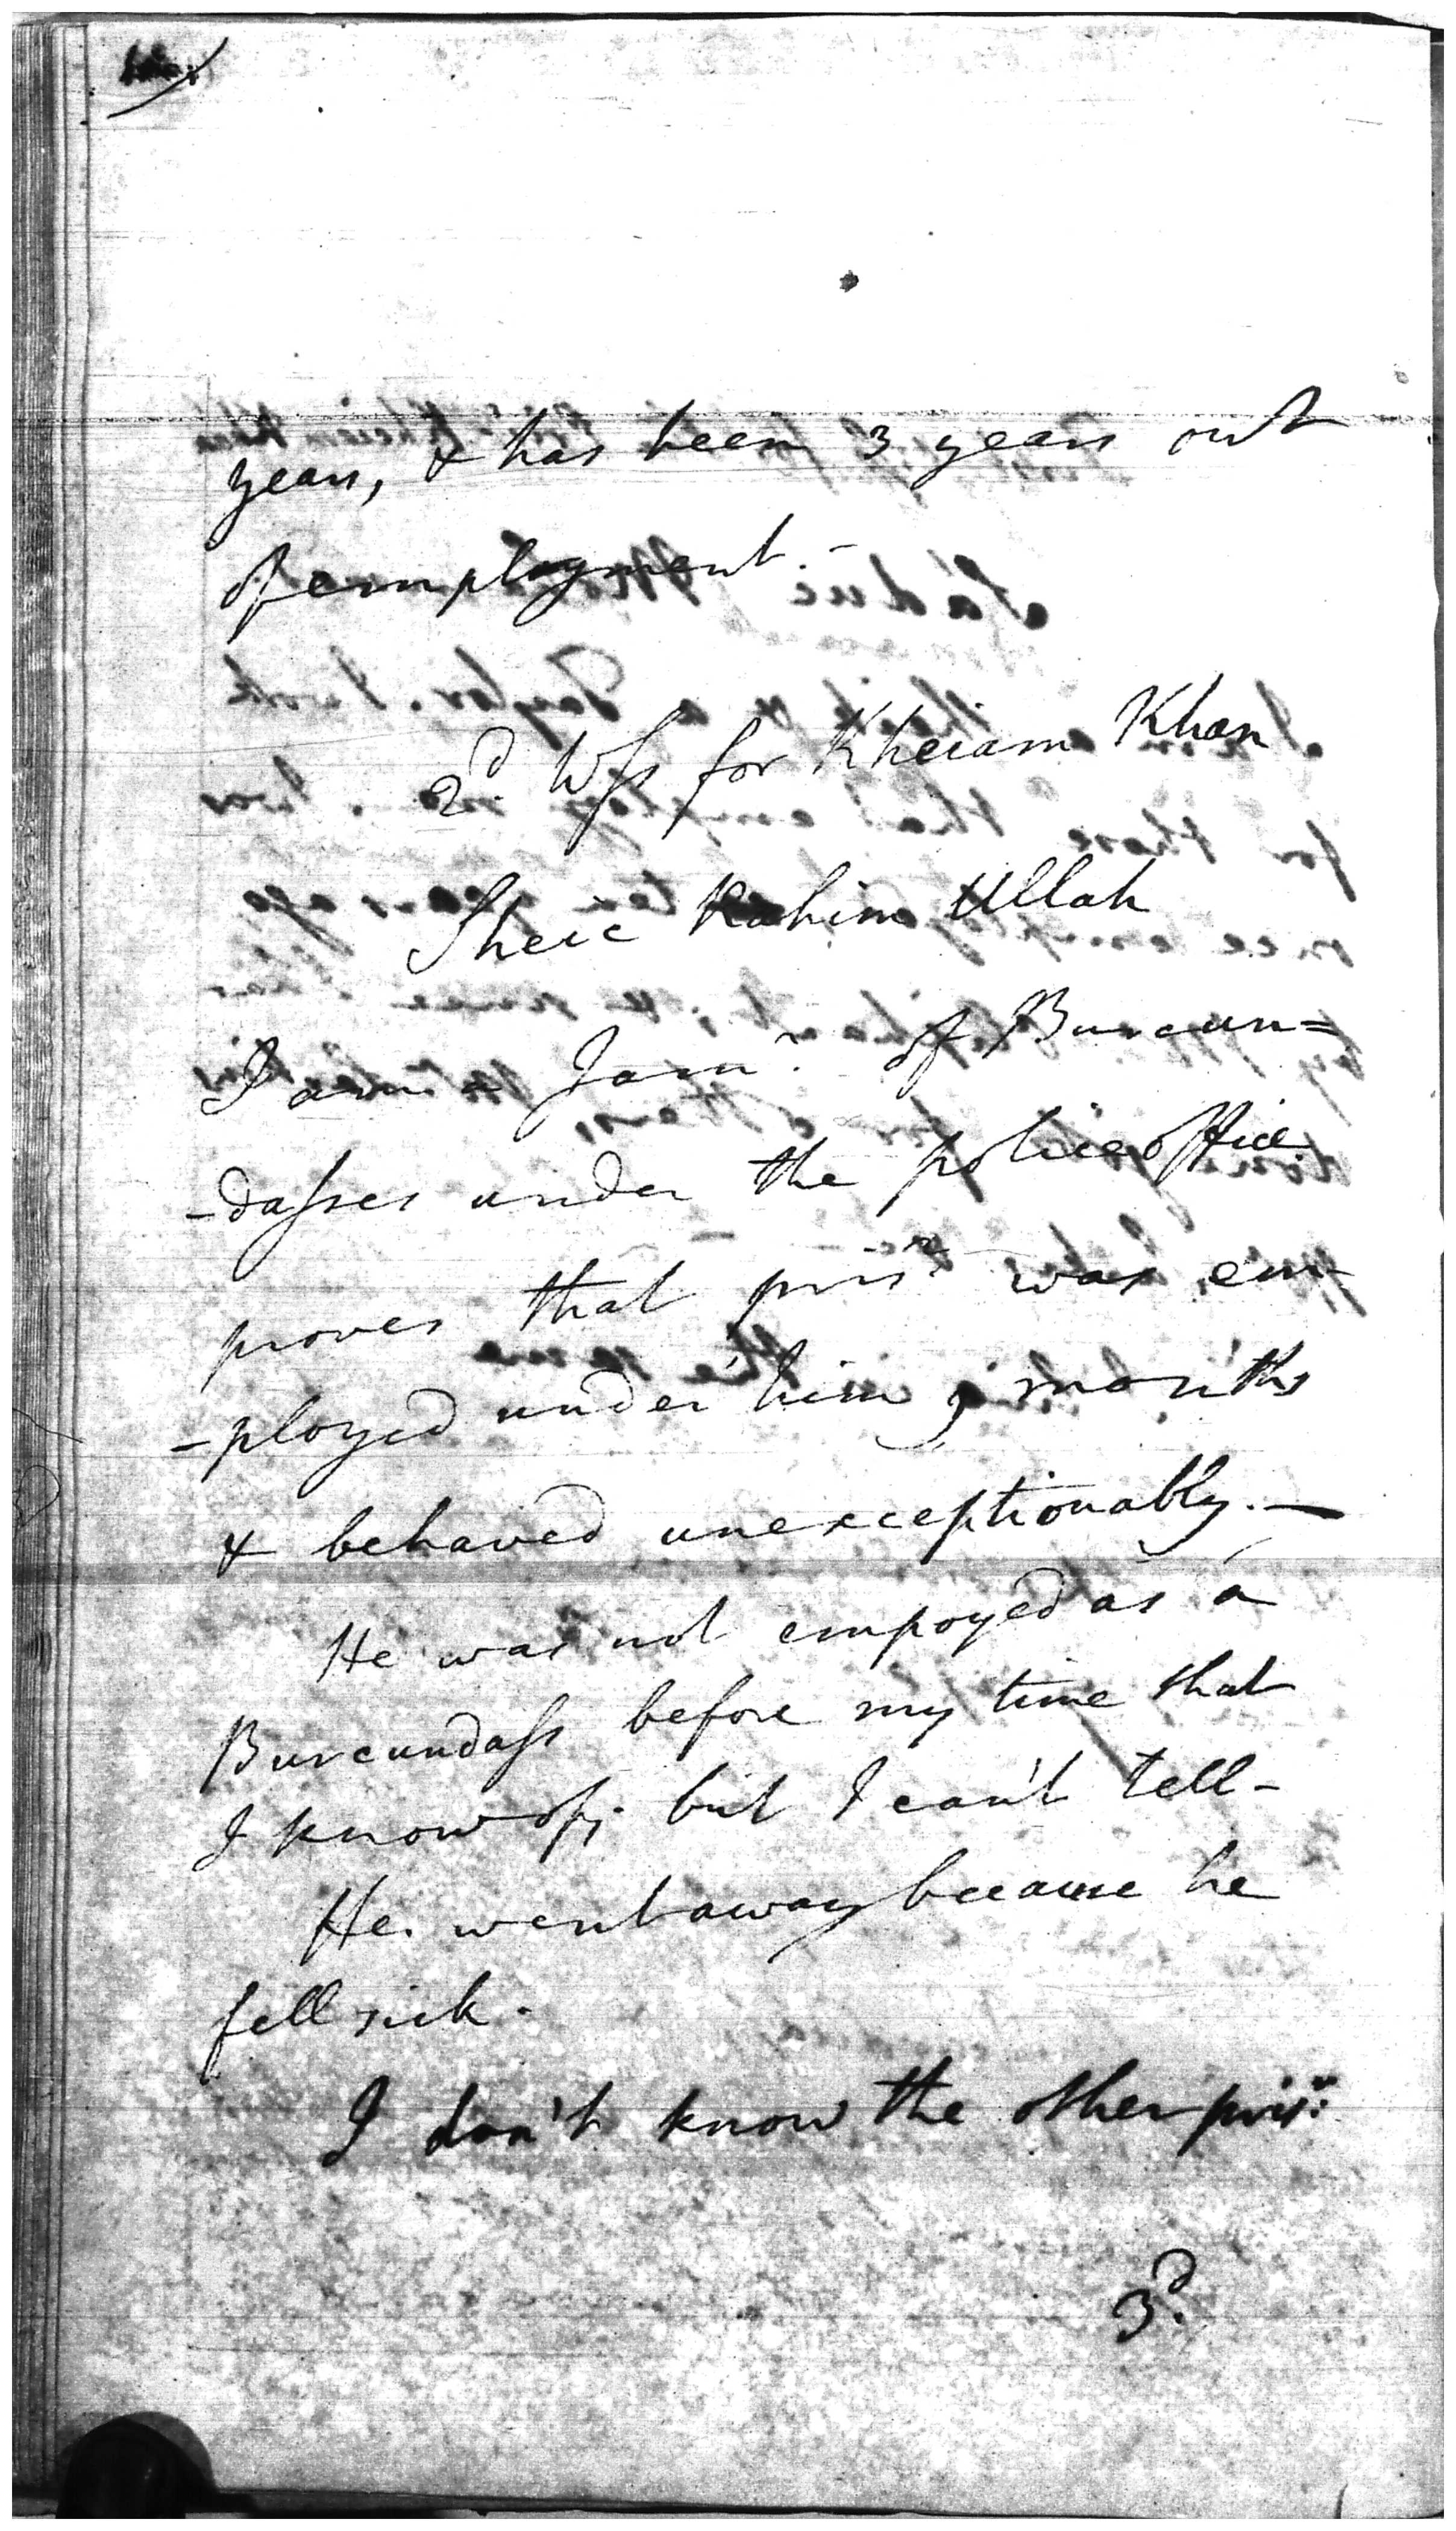 years, & has been 3 years out
of employment. -
2d. Wss for Kheiam Khan
Sheic Rahim Ullah
I am a Jamr. of Burcun=
-dasses under the police office
proves that prisr. was em-
-ployed under him 9 months
& behaved unexceptionably. -
He was not empoyed as a
Burcundass before my time that
I know of; but I can't tell -
He went away because he
fell sick.
I don't know the other prisr:
3d.